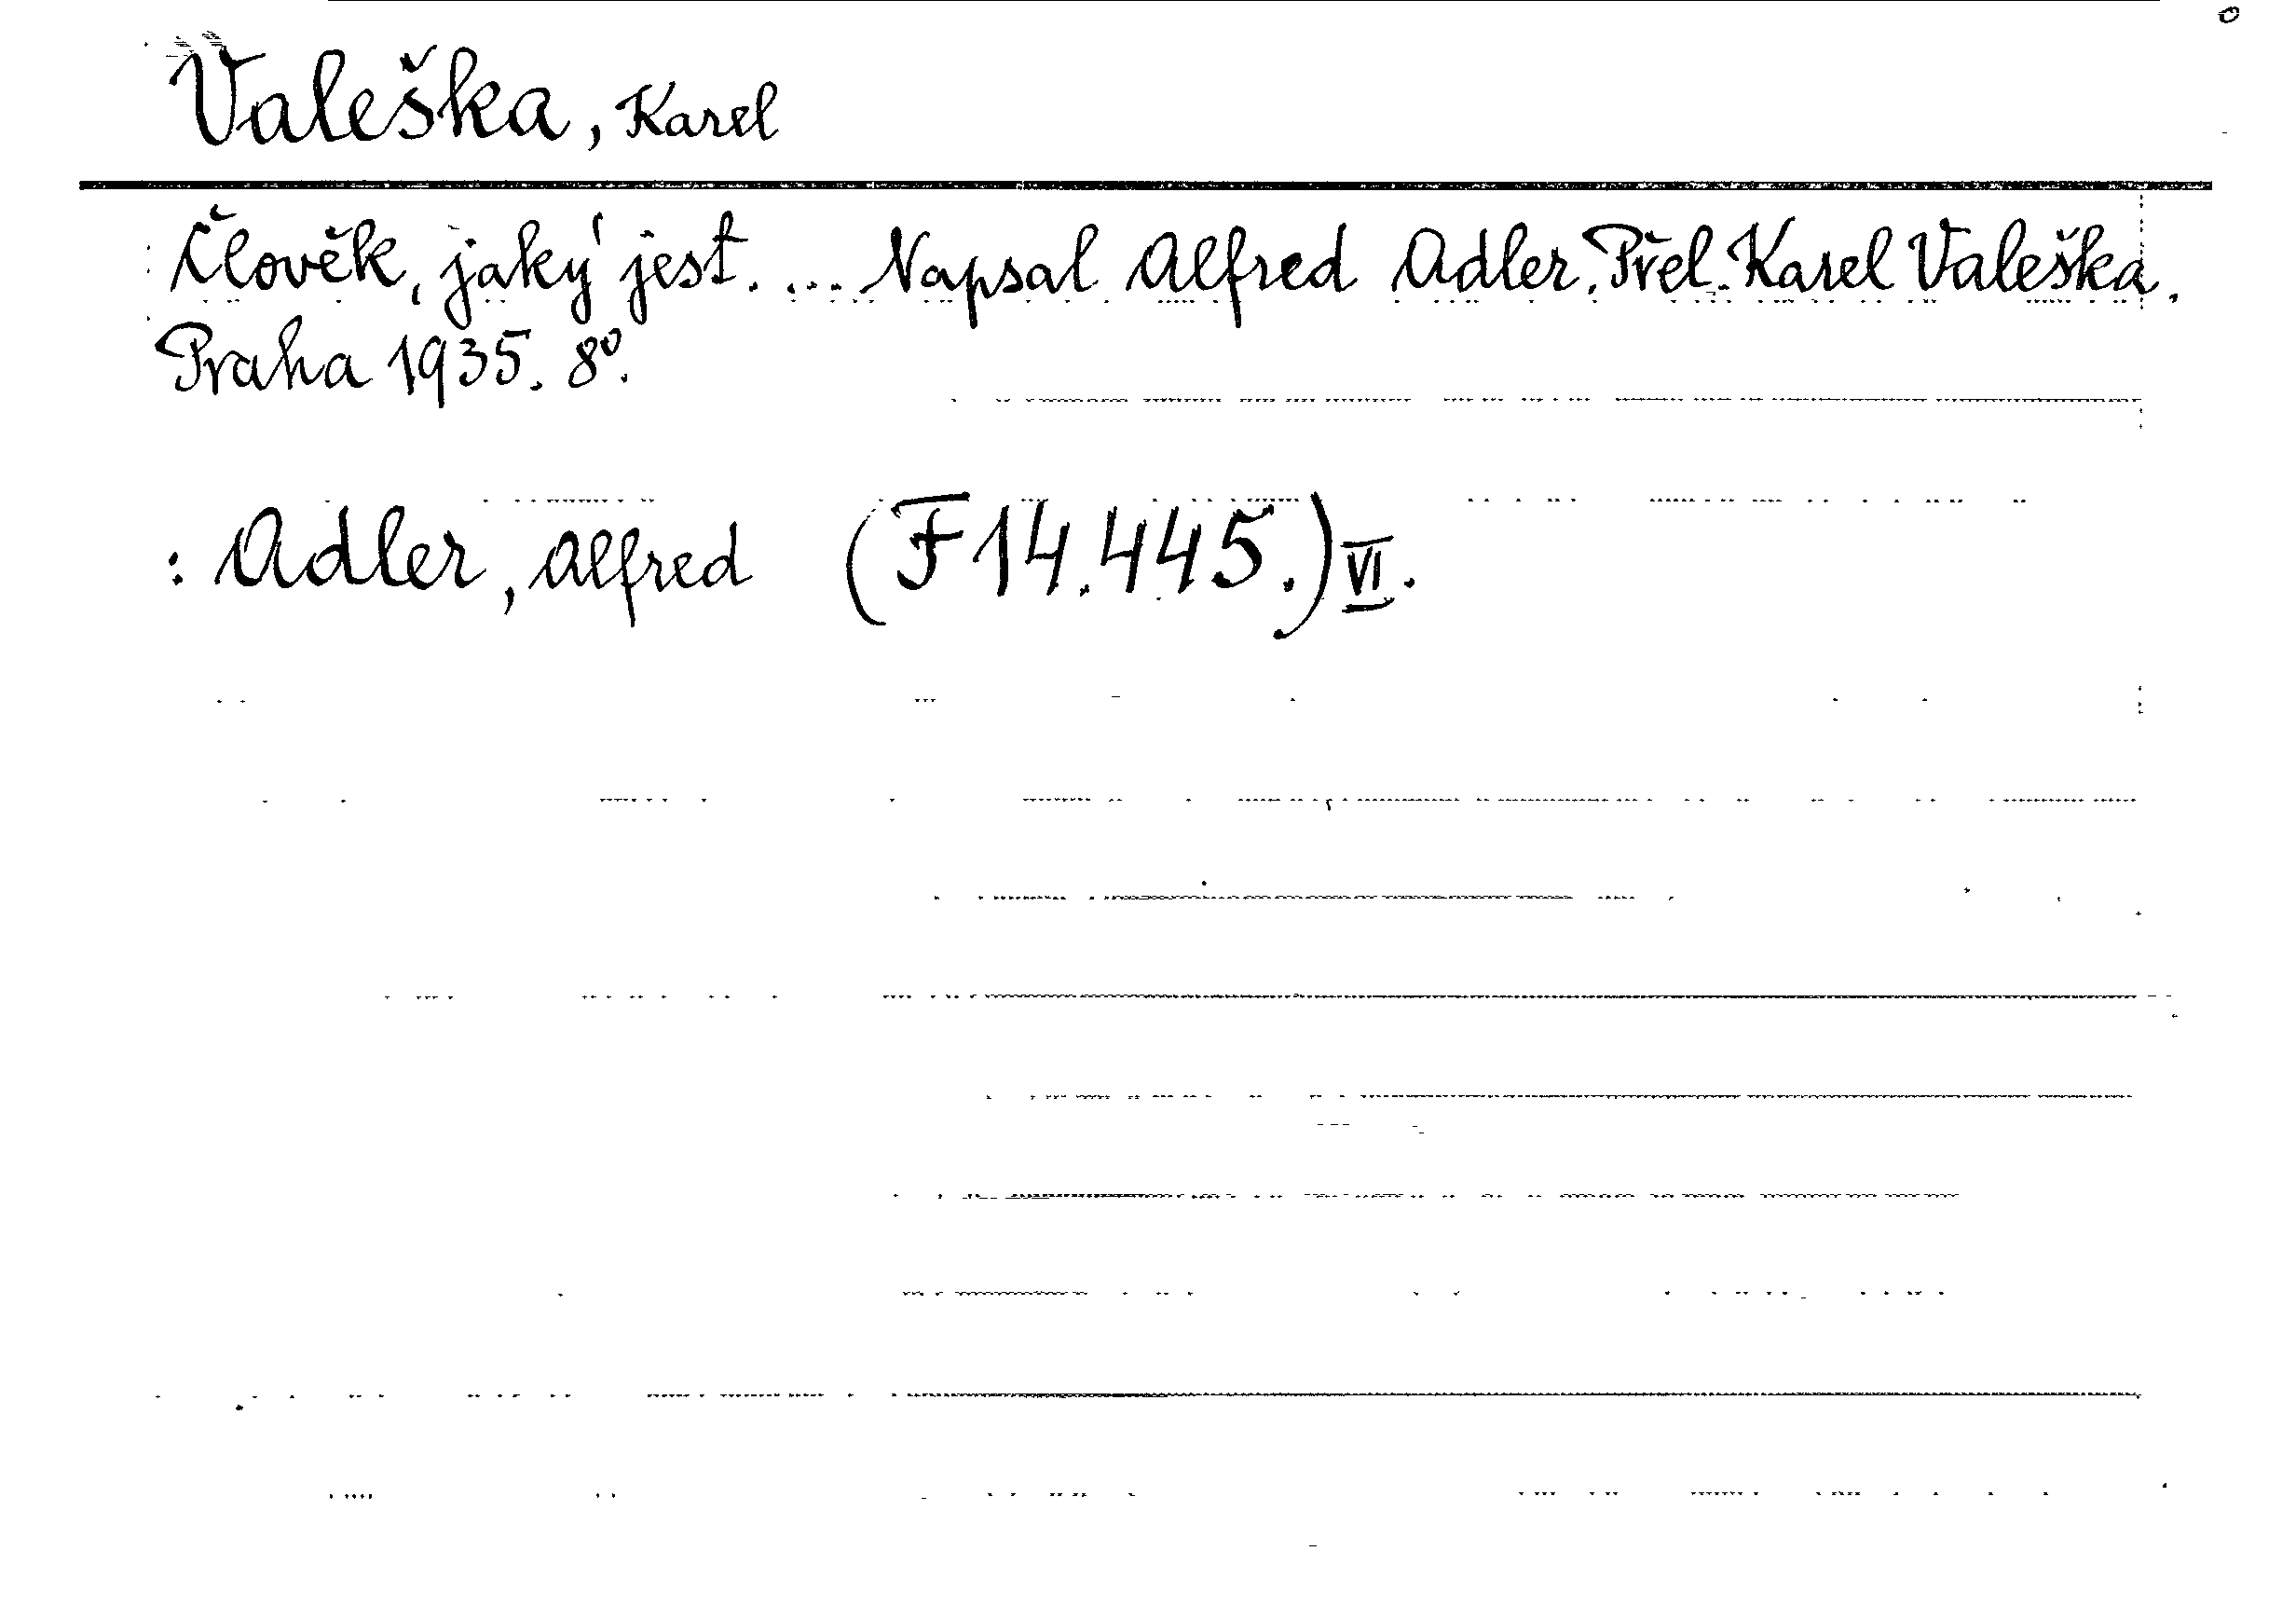 Valeška, Karel
Člověk, jaký jest. ... Napsal Alfred Adler. Přel. Karel Valeška.
Praha 1935. 8°.
: Adler, Alfred (F 14.445.) VI.